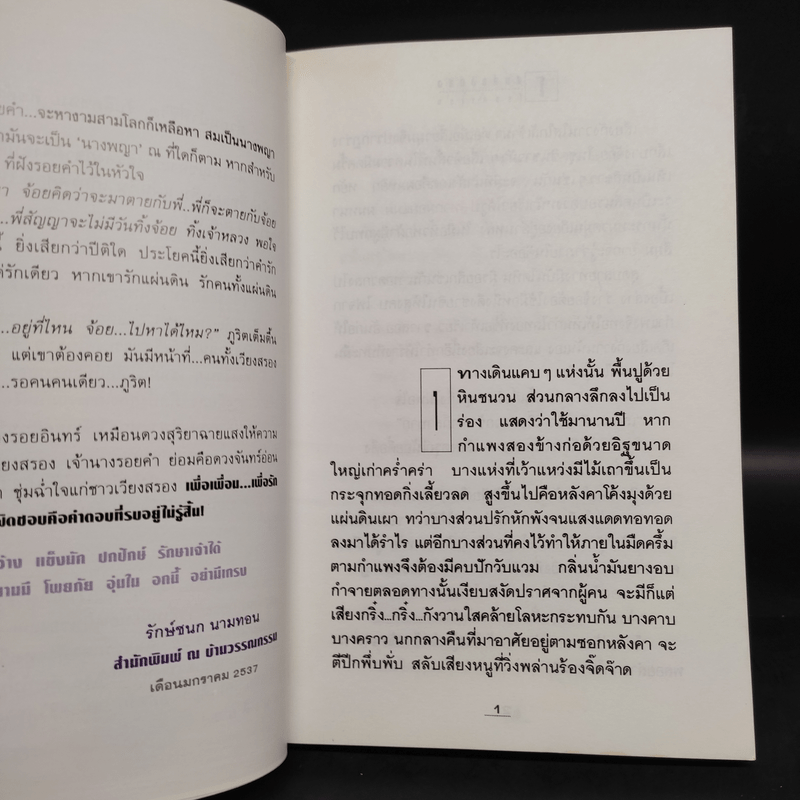 ยคำ...จะหางามสามโลกก็เหลือหา สมเป็นนางพญา
ามันจะเป็น 'นางพญา' ณ ที่ใดก็ตาม หากสำหรับ
ที่ฝังรอยคำไว้ในหัวใจ
า จ้อยคิดว่าจะมาตายกับพี่..พี่ก็จะตายกับจ้อย
...พี่สัญญาจะไม่มีวันทิ้งจ้อย ทิ้งเจ้าหลวง พอใจ
้ ยิ่งเสียกว่าปีติใด ประโยคนี้ยิ่งเสียกว่าคำรัก
่รักเดียว หากเขารักแผ่นดิน รักคนทั้งแผ่นดิน
...อยู่ที่ไหน จ้อย...ไปหาได้ไหม?” ภูริตเต็มตื้น
แต่เขาต้องคอย มันมีหน้าที่...คนทั้งเวียงสรอง
...รอคนคนเดียว...ภูริต!
งรอยอินทร์ เหมือนดวงสุริยาฉายแสงให้ความ
ยงสรอง เจ้านางรอยคำ ย่อมคือดวงจันทร์อ่อน
ชุ่มฉ่ำใจแก่ชาวเวียงสรอง เพื่อเพื่อน...เพื่อรัก
ผิดชอบคือคำตอบที่รบอยู่ไม่รู้สิ้น!
ว้าง แข็งนัก ปกปักษ์ รักษาเจ้าได้
านมี โพยภัย อุ่นใน อกนี้ อย่ามีเกรง
รักษ์ชนก นามทอน
สำนักพิมพ์ ณ บ้านวรรณกรรม
เดือนมกราคม 2537
1 ทางเดินแคบๆ แห่งนั้น พื้นปูด้วย
หินชนวน ส่วนกลางลึกลงไปเป็น
ร่อง แสดงว่าใช้มานานปี หาก
กำแพงสองข้างก่อด้วยอิฐขนาด
ใหญ่เก่าคร่ำคร่า บางแห่งที่เว้าแหว่งมีไม้เถาขึ้นเป็น
กระจุกทอดกิ่งเลี้ยวลด สูงขึ้นไปคือหลังคาโค้งมุงด้วย
แผ่นดินเผา ทว่าบางส่วนปรักหักพังจนแสงแดดทอทอด
ลงมาได้รำไร แต่อีกบางส่วนที่คงไว้ทำให้ภายในมืดครึ้ม
ตามกำแพงจึงต้องมีคบปักวับแวม กลิ่นน้ำมันยางอบ
กำจายตลอดทางนั้นเงียบสงัดปราศจากผู้คน จะมีก็แต่
เสียงกริ๋ง...กริ๋ง...กังวานใสคล้ายโลหะกระทบกัน บางคาบ
บางคราว นกกลางคืนที่มาอาศัยอยู่ตามซอกหลังคา จะ
ตีปีกพึ่บพั่บ สลับเสียงหนูที่วิ่งพล่านร้องจิ๊ดจ๊าด
1